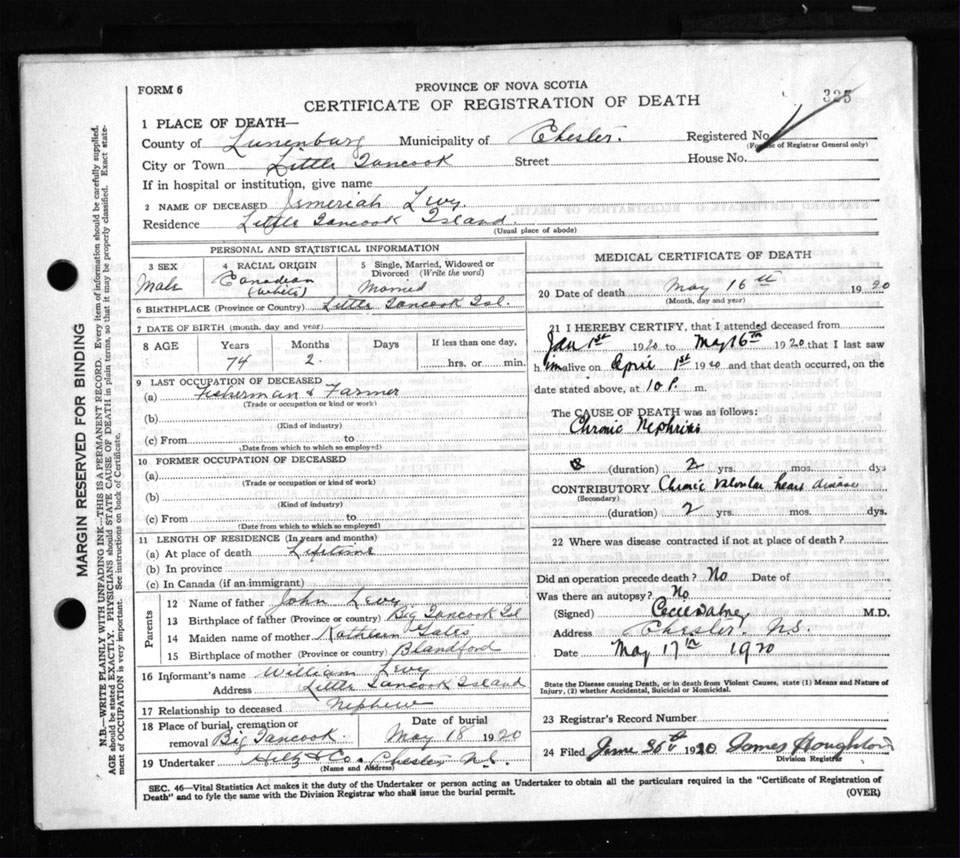 FORM 6
PROVINCE OF NOVA SCOTIA
CERTIFICATE OF REGISTRATION OF DEATH
335
1 PLACE OF DEATH—
County of Lunenburg Municipality of Chester. Registered No.
(For use of Registrar General only)
City or Town Little Tancook Street House No.
If in hospital or institution, give name
2 NAME OF DECEASED Ismeriah Levy.
Residence Little Tancook Island.
(Usual place of abode)
PERSONAL AND STATISTICAL INFORMATION
3 SEX 4 RACIAL ORIGIN 5 Single, Married, Widowed or Divorced (Write the word)
Male Canadian (White) Married
6 BIRTHPLACE (Province or Country) Little Tancook Isl.
7 DATE OF BIRTH (month, day and year)
8 AGE Years Months Days If less than one day,
74 2 hrs. or min.
9 LAST OCCUPATION OF DECEASED
(a) Fisherman & Farmer
(Trade or occupation or kind or work)
(b)
(Kind of industry)
(c) From to
(Date from which to which so employed)
10 FORMER OCCUPATION OF DECEASED
(a)
(Trade or occupation or kind or work)
(b)
(Kind of industry)
(c) From to
(Date from which to which so employed)
11 LENGTH OF RESIDENCE (in years and months)
(a) At place of death Lifetime
(b) In province
(c) In Canada (if an immigrant)
Parents
12 Name of father John Levy
13 Birthplace of father (Province or country) Big Tancook Isl
14 Maiden name of mother Kathleen Gates
15 Birthplace of mother (Province or country) Blandford
16 Informant's name William Levy
Address Little Tancook Island
17 Relationship to deceased Nephew
18 Place of burial, cremation or removal Big Tancook. Date of burial May 18 1920
19 Undertaker Hilz & Co. Chester N.S.
(Name and Address)
MEDICAL CERTIFICATE OF DEATH
20 Date of death May 16th 1920
(Month, day and year)
21 I HEREBY CERTIFY, that I attended deceased from
Jan 1st 1920 to May 16th 1920 that I last saw
him alive on April 1st 1920 and that death occurred, on the
date stated above, at 10 P. m.
The CAUSE OF DEATH was as follows:
Chronic Nephritis
(duration) 2 yrs. mos. dys
CONTRIBUTORY Chronic valvular heart disease
(Secondary)
(duration) 2 yrs. mos. dys.
22 Where was disease contracted if not at place of death?
Did an operation precede death? No Date of
Was there an autopsy? No
(Signed) M.D.
Address Chester. N.S.
Date May 17th 1920
State the Disease causing Death, or in death from Violent Causes, state (1) Means and Nature of
Injury, (2) whether Accidental, Suicidal or Homicidal.
23 Registrar's Record Number
24 Filed June 30th 1920 James Houghton
Division Registrar
SEC. 46—Vital Statistics Act makes it the duty of the Undertaker or person acting as Undertaker to obtain all the particulars required in the "Certificate of Registration of
Death" and to fyle the same with the Division Registrar who shall issue the burial permit.
(OVER)
MARGIN RESERVED FOR BINDING
N.B.—WRITE PLAINLY WITH UNFADING INK—THIS IS A PERMANENT RECORD. Every item of information should be carefully supplied.
AGE should be stated EXACTLY. PHYSICIANS should STATE CAUSE OF DEATH in plain terms, so that it may be properly classified. Exact state-
ment of OCCUPATION is very important. See instructions on back of Certificate.